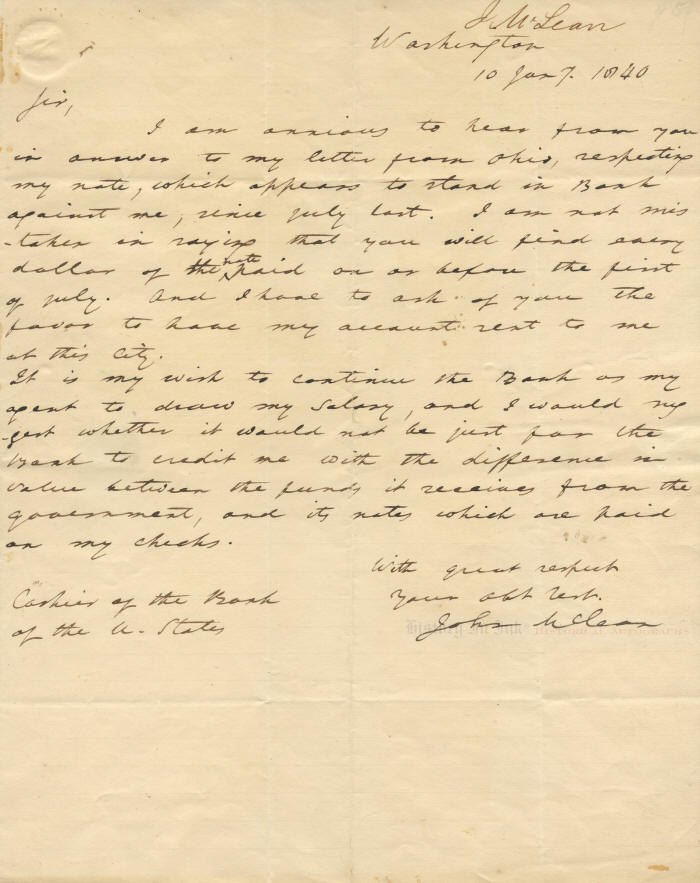 J. McLean
Washington
10 Jany. 1840
Sir,
I am anxious to hear from you
in answer to my letter from Ohio, respecting
my note, which appears to stand in Bank
against me, since July last. I am not mis
-taken in saying that you will find every
dollar of the note paid on or before the first
of July. And I have to ask of you the
favor to have my account sent to me
at this City.
It is my wish to continue the Bank as my
agent to draw my Salary, and I would sug
-gest whether it would not be just for the
Bank to credit me with the difference in
value between the funds it receives from the
government, and its notes which are paid
on my checks.
With great respect
Your obt sert.
John McLean
Cashier of the Bank
of the U. States
History In Ink HISTORICAL AUTOGRAPHS